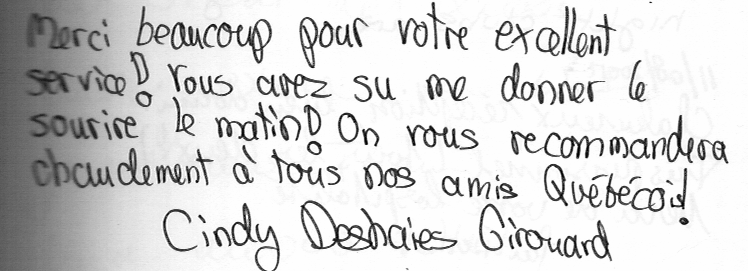 Merci beaucoup pour votre excellent
service! Vous avez su me donner le
sourire le matin! On vous recommandera
chaudement à tous nos amis Québécois!
Cindy Deshaies Girouard